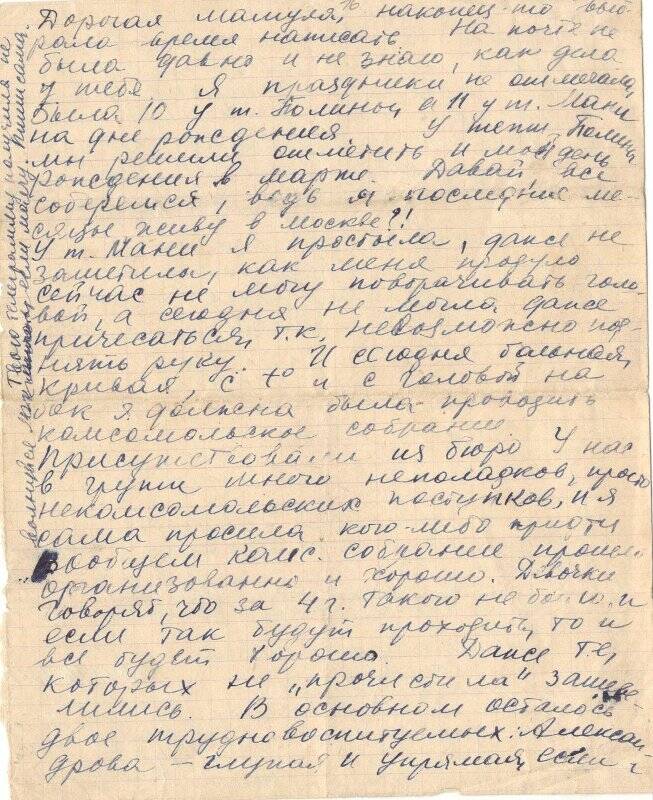 Дорогая мамуля, наконец-то выб-
рала время написать На почте не
была давно и не знаю, как дела
у тебя. Я праздники не отмечала,
была 10 у т. Полины, а 11 у т. Мани
на дне рождения. У тети Полины
мы решили отметить и мой день
рождения в марте. Давай, все
соберемся, ведь я последние ме-
сяцы живу в Москве?!
У т. Мани я простыла, даже не
заметила, как меня продуло
сейчас не могу поворачивать голо-
вой, а сегодня не могла даже
причесаться, т.к. невозможно под-
нять руку. И сегодня больная,
кривая, с t° и с головой на
бок я должна была проводить
комсомольское собрание
Присутствовали из бюро У нас
в группе много неполадков, просто
некомсомольских поступков, и я
сама просила кого-либо придти
Вообщем комс. собрание прошло
организованно и хорошо. Девочки
говорят, что за 4 г. такого не было, и
если так будут проходить, то и
все будет хорошо. Даже те,
которых не "прочистила" зашеве-
лились. В основном осталось
двое трудновоспитуемых: Алексан
дрова - глупая и упрямая, если
Твою телеграмму получила не
волнуйся, мам, если могу. Пиши сама.